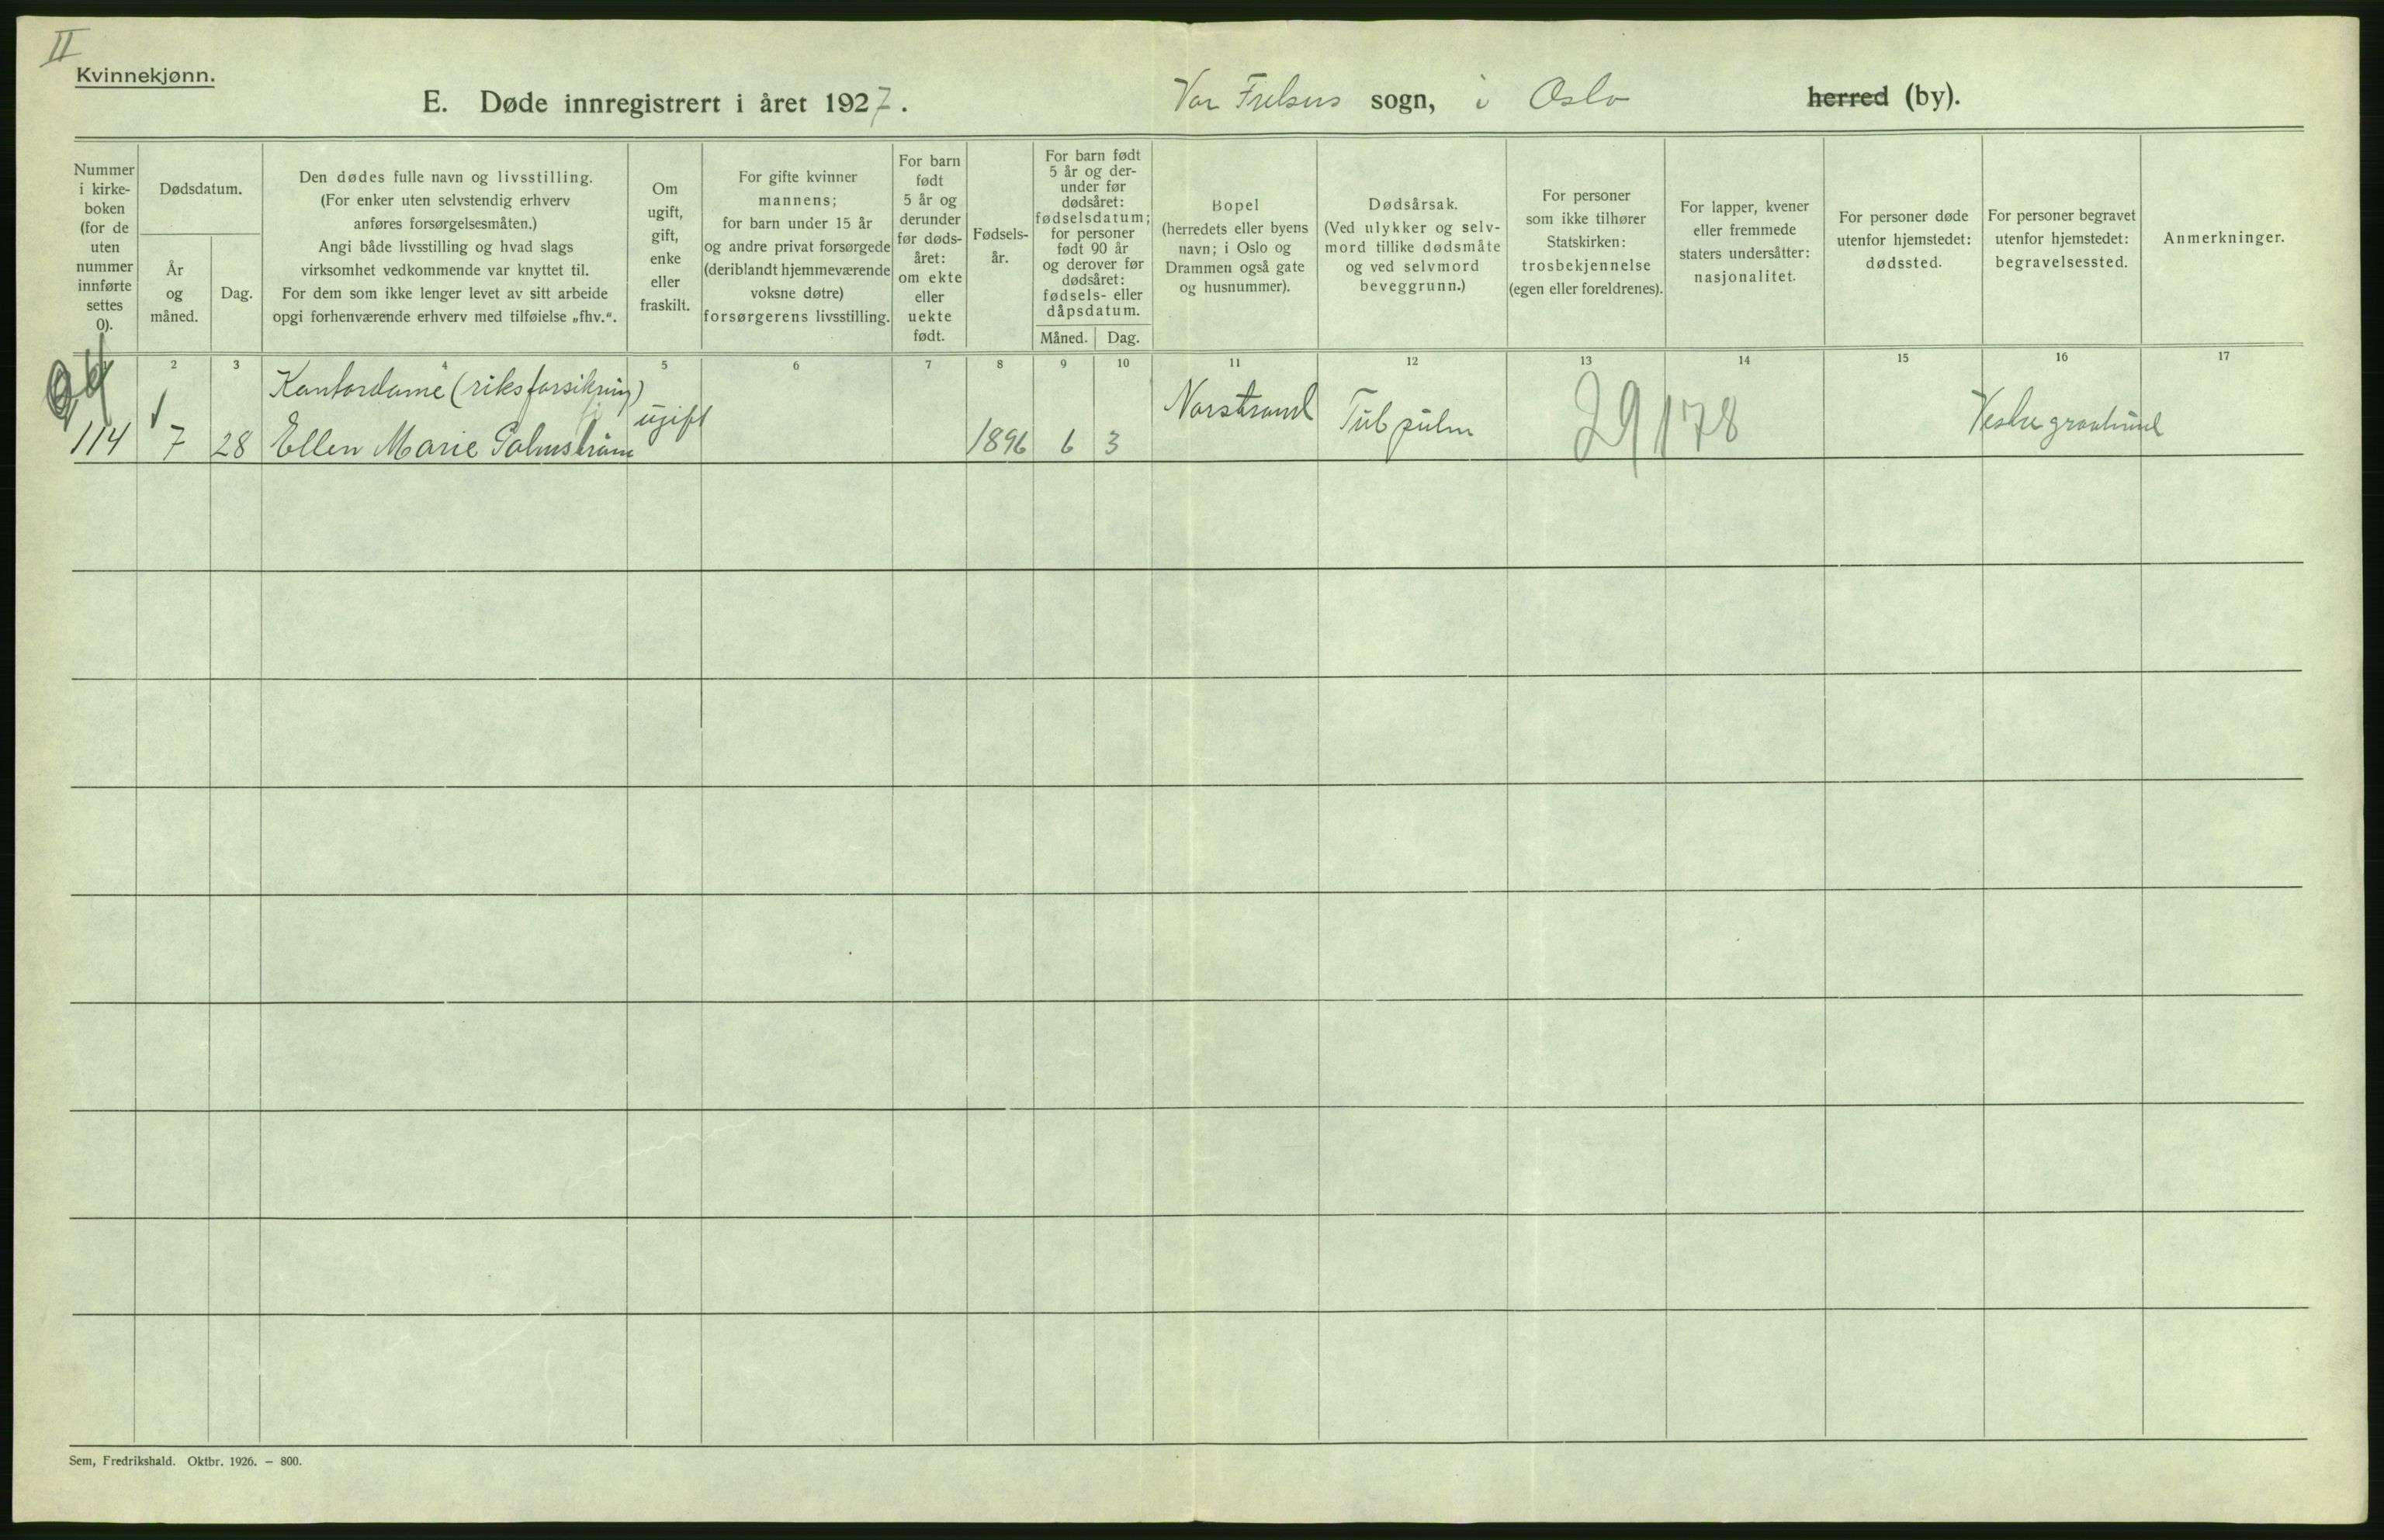 II
Kvinnekjønn.
E. Døde innregistrert i året 1927.
Vor Frelsers sogn, i Oslo herred (by).
Nummer
i kirke-
boken
(for de
uten
nummer
innførte
settes
0).
Dødsdatum.
År
og
måned.
Dag.
Den dødes fulle navn og livsstilling.
(For enker uten selvstendig erhverv
anføres forsørgelsesmåten.)
Angi både livsstilling og hvad slags
virksomhet vedkommende var knyttet til.
For dem som ikke lenger levet av sitt arbeide
opgi forhenværende erhverv med tilføielse „fhv.“.
Om
ugift,
gift,
enke
eller
fraskilt.
For gifte kvinner
mannens;
for barn under 15 år
og andre privat forsørgede
(deriblandt hjemmeværende
voksne døtre)
forsørgerens livsstilling.
For barn
født
5 år og
derunder
før døds-
året:
om ekte
eller
uekte
født.
Fødsels-
år.
For barn født
5 år og der-
under før
dødsåret:
fødselsdatum;
for personer
født 90 år
og derover før
dødsåret:
fødsels- eller
dåpsdatum.
Måned. Dag.
Bopel
(herredets eller byens
navn; i Oslo og
Drammen også gate
og husnummer).
Dødsårsak.
(Ved ulykker og selv-
mord tillike dødsmåte
og ved selvmord
beveggrunn.)
For personer
som ikke tilhører
Statskirken:
trosbekjennelse
(egen eller foreldrenes).
For lapper, kvener
eller fremmede
staters undersåtter:
nasjonalitet.
For personer døde
utenfor hjemstedet:
dødssted.
For personer begravet
utenfor hjemstedet:
begravelsessted.
Anmerkninger.
2 3 4 5 6 7 8 9 10 11 12 13 14 15 16 17
Kontordame (riksforsikring)
114 7 28 Ellen Marie Palmstrøm ugift 1896 6 3 Norstrand Tub pulm 29178 Vestre gravlund
Sem, Fredrikshald. Oktbr. 1926. — 800.